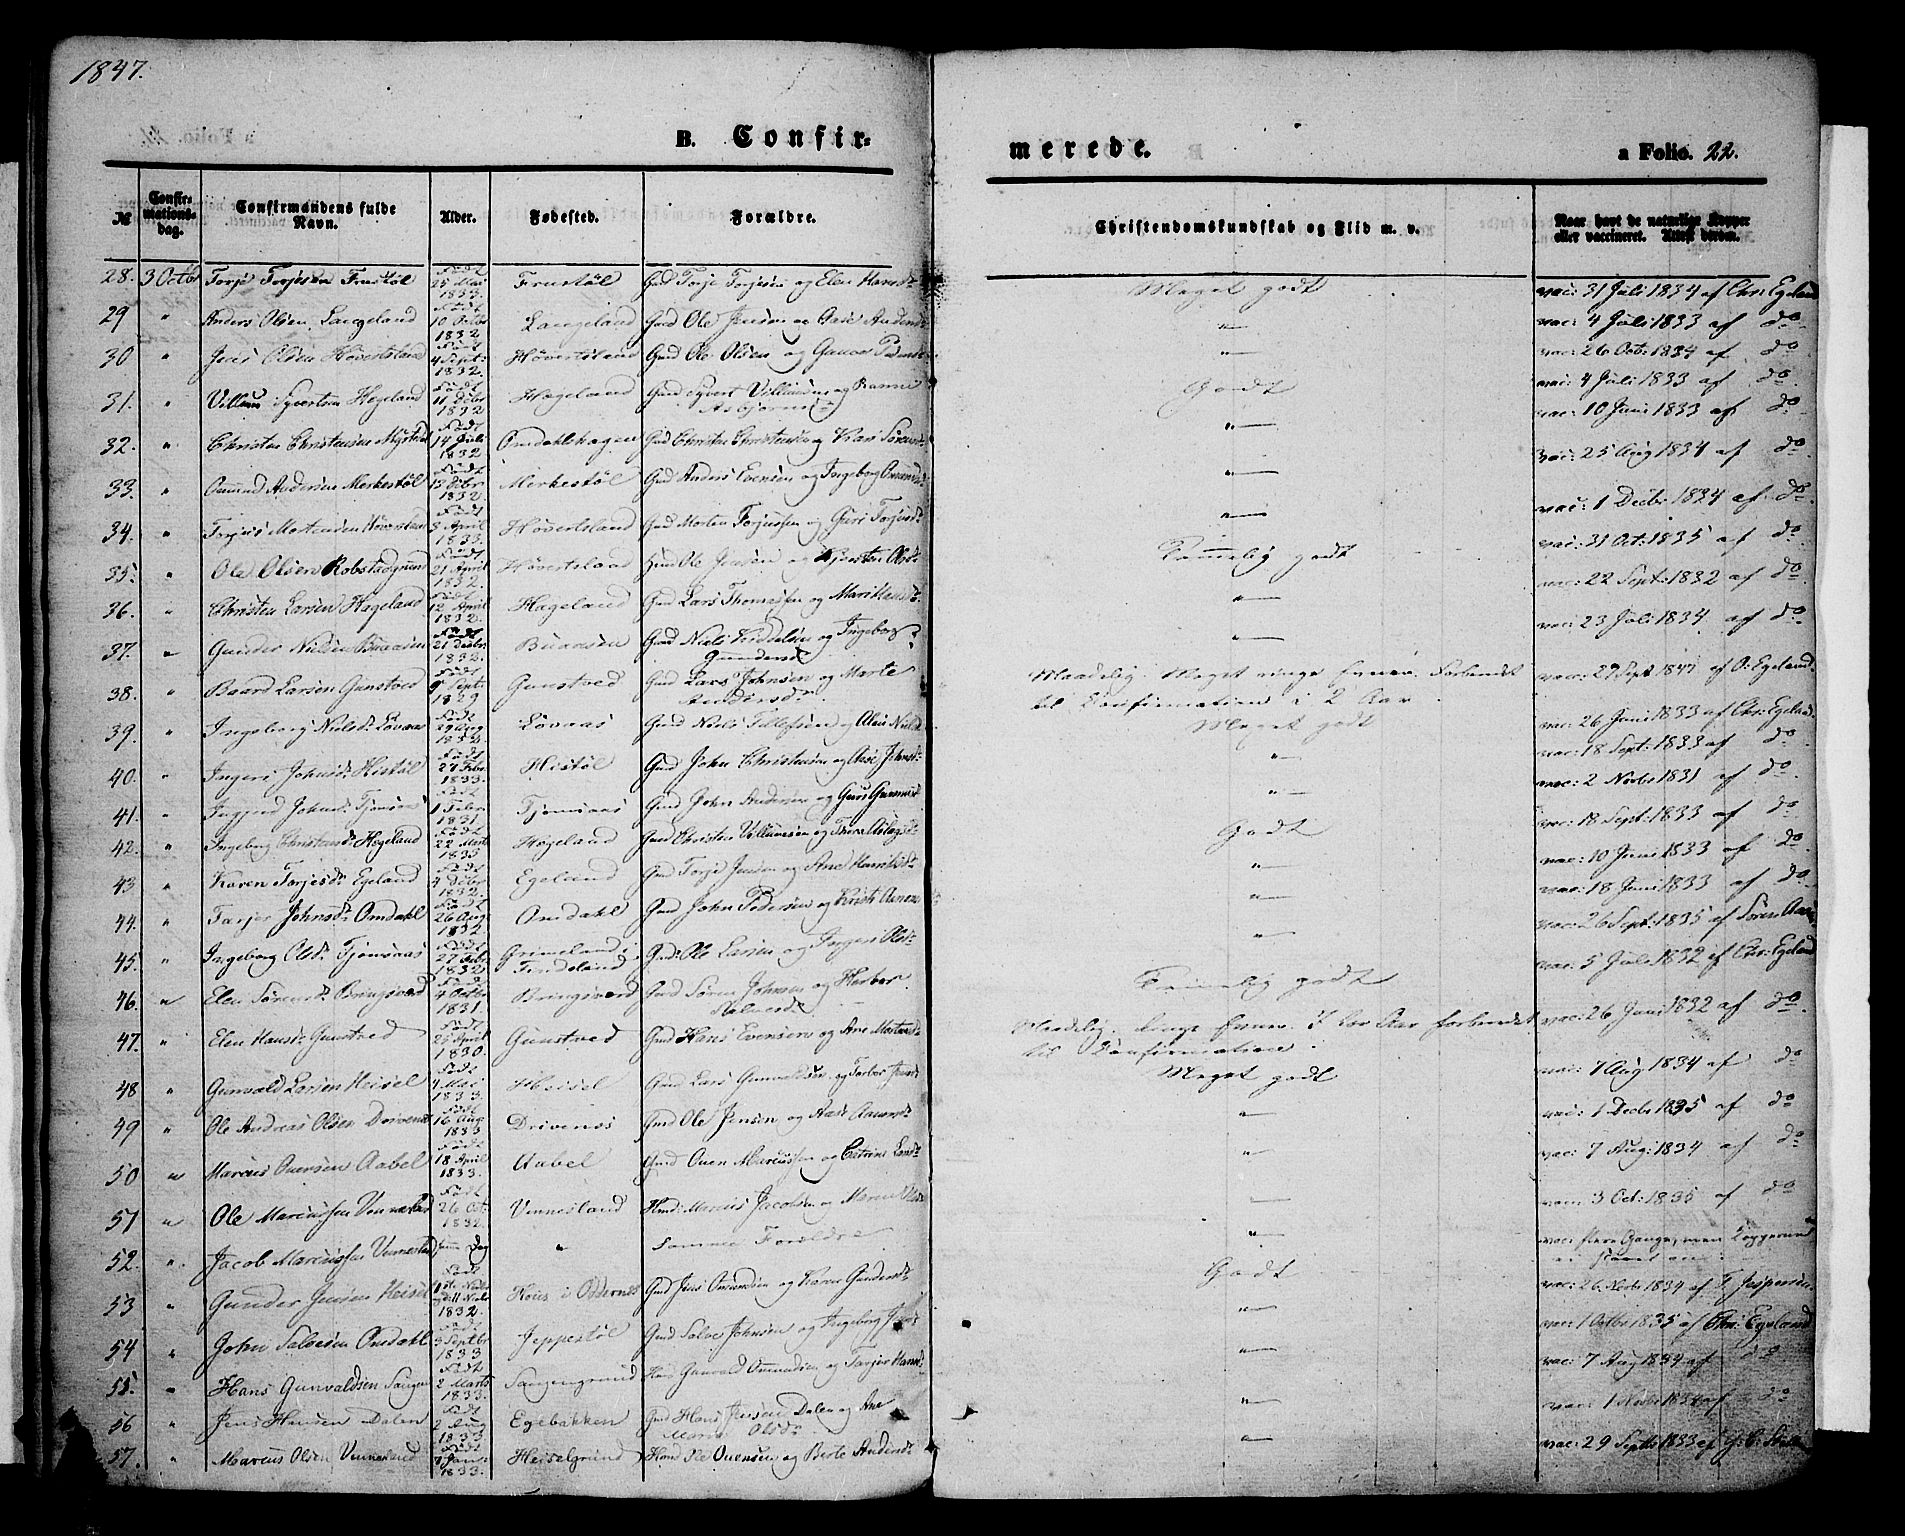 1847.
B. Confir-
merede.
a Folio. 22.
№
Confir-
mations-
dag.
Confirmandens fulde
Navn.
Alder.
Fødested.
Forældre.
Christendomskundskab og Flid m. v.
Naar havt de naturlige Kopper
eller vaccineret. Attest derom.
28. 3 Octbr Torje Torjesen Frustøl Født 25 Mai 1833. Frustøl Gmd Torje Torjesen og Elen Hansdr Meget godt vac: 31 Juli 1834 af Chr: Egeland
29 " Anders Olsen Langeland Født 10 Octbr 1832. Langeland Gmd Ole Jensen og Aase Andersdr " vac: 4 Juli 1833 af do
30 " Jens Olsen Høvertsland Født 4 Septr: 1832. Høvertsland Gmd Ole Olsen og Gunvor " vac: 26 Oct: 1834 af do
31. " Villum Syvertsen Hægeland Født 11 Decbr 1832 Hægeland Gmd Syvert Villumsen og Ranne Asbjørns Godt vac: 4 Juli 1833 af do
32. " Christen Christensen Født 14 Juli 1832 Omdahlshagen Gmd Christen Christensen og Kari Sørensdr " vac: 10 Juni 1833 af do
33. " Omund Andersen Merkestøl Født 13 Decbr 1832. Merkestøl Gmd Anders Evensen og Ingeborg Omundsdr " vac: 25 Aug 1834 af do
34. " Torjus Mortensen Høvertsland Født 8 April 1833. Høvertsland Gmd Morten Torjussen og Guri Torjusdr " vac: 1 Decbr 1834 af do
35. " Ole Olsen Robstadgrund Født 21 April 1832. Høvertsland Hmd Ole Jensen og Kjersten Olsdr Temmelig godt vac: 31 Oct: 1835 af do
36. " Christen Larsen Hægeland Født 12 April 1832. Hægeland Gmd Lars Thomassen og Mari Hansdr " vac: 22 Sept: 1832 af do
37. " Gunder Nielsen Buaasen Født 21 Decbr: 1832. Buaasen Gmd Niels Kiddelsen og Ingeborg Gundersdr " vac: 23 Juli 1834 af do
38. " Baard Larsen Gunstved Født 9 Septr: 1829 Gunstved Gmd Lars Johnsen og Marte Andersdr Maadelig. Meget ringe Evner. Forberedt til Confirmation i 2 Aar. vac: 27 Sept 1847 af O: Egeland
39. " Ingeborg Nielsdr Løvaas Født 29 Aug Løvaas Gmd Niels Tellefsen og Meget godt vac: 26 Juni 1833 af Chr: Egeland
40. " Ingeri Johnsdr Histøl Født 27 Febr: 1833. Histøl Gmd John Christensen og Aase Johnsdr " vac: 18 Sept: 1833 af do
41. " Johnsdr Født 1 Febr 1831. Tjomsaas Gmd John Andersen og Guri " vac: 2 Novbr 1831 af do
42. " Ingeborg Christensdr Hægeland Født 22 Marts Hægeland Gmd Christen Villumsen og Thore Aslagsdr Godt vac: 18 Sept: 1833 af do
43 " Karen Torjesdr Egeland Født 4 Decbr 1832. Egeland Gmd Torje Jensen og Ane Henriksdr " vac: 10 Juni 1833 af do
44. " Tarjer Johnsdr Omdahl Født 26 Aug: 1832 Omdahl Gmd John Pedersen og Kristi " vac: 18 Juni 1833 af do
45. " Ingeborg Olsdr Tjomsaas Født 27 Febr 1832 Grimeland i Findsland Gmd: Ole Larsen og Inggeri Olsdr " vac: 26 Sept: 1835 af Søren
46. " Elen Sørensdr Bringsverd Født 4 Octbr 1831. Bringsverd Gmd Søren Johnsen og Herbor Temmelig godt vac: 5 Juli 1832 af Chr: Egeland
47. " Elen Hansdr Gunstved Født 25 April 1830. Gunstved Gmd Hans Evensen og Ane Mortensdr Maadelig. Ringe Evner. I Aar forberedet til Confirmation. vac: 26 Juni 1832 af do
48 " Gunvald Larsen Heisel Født 4 Mai 1833. Heisel Gmd Lars Gunvaldsen og Tarbor Meget godt vac: 7 Aug 1834 af do
49 " Ole Andreas Olsen Drivenes Født 16 Aug 1833 Drivenes Gmd Ole Jensen og Aase " vac: 1 Decbr 1835 af do
50 " Marcus Ouensen Aabel Født 18 April 1833. Aabel Gmd Ouen Marcussen og Catrine " vac: 7 Aug: 1834 af do
51 " Ole Marcussen Vennesland Født 26 Oct: 1832. Vennesland Hmd: Marcus Jacobsen og Maren Olsdr " vac: 3 Oct: 1835 af do
52. " Jacob Marcussen Vennesland samme Dag " Samme Forældre " vac: flere Gange, men
53 " Gunder Jensen Heisel Født 1832. i Oddernes Gmd Jens Omundsen og Karen Gundersdr Godt vac: 26 Decbr 1834 af T. Jespersen
54 " John Salvesen Omdahl Født 3 Septbr 1833 Jeppestøl Gmd Salve Johnsen og Ingeborg " vac: 1 Octbr 1835 af Chr: Egeland
55. " Hans Gunvaldsen Født 2 Marts 1833. Gunvald Omundsen og Tarjer Hansdr " vac: 7 Aug 1834 af do
56 " Jens Hansen Dalen Født 2 Aug 1833 Egebakken Gmd Hans Jensen Dalen og Ane Marie Olsdr " vac: 1 Novbr 1834 af do
57. " Marcus Olsen Vennesland Født 1833. Heiselgrund Hmd Ole Ouensen og Berte Andersdr " vac: 29 Septbr 1833 af